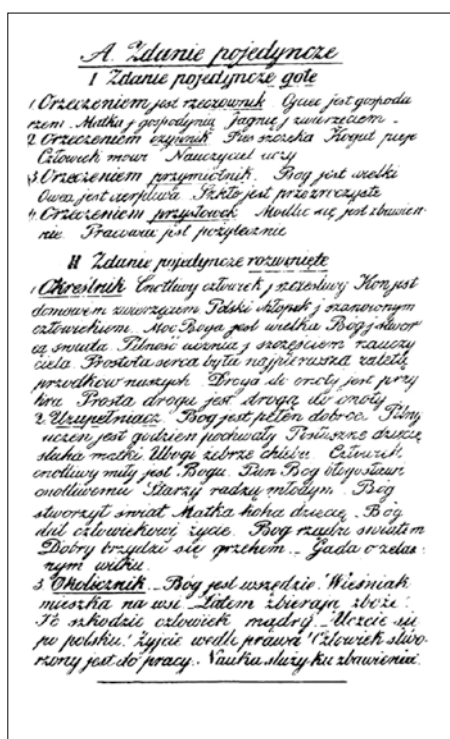 A. Zdanie pojedyncze
I Zdanie pojedyncze gołe
1. Orzeczeniem jest rzeczownik. Ojciec jest gospoda
rzem. Matka j gospodynią Jagnię j zwierzęciem.
2. Orzeczeniem czasownik Pies szczeka Kogut pieje
Człowiek mowi Nauczyciel uczy
3. Orzeczeniem przymiotnik. Bog jest wielki
Owca jest cierpliwa. Szkło jest przezroczyste
4. Orzeczeniem przysłowek Modlic się jest zbawien-
nie. Pracowac jest pożytecznie
II Zdanie pojedyncze rozwinięte
1. Określnik Cnotliwy człowiek j szczęśliwy Kon jest
domowem zwierzęciem Polski chłopek j szanownym
człowiekiem. Moc Boga jest wielka Bog j stwor
cą swiata Pilność ucznia j szczęściem nauczy
ciela. Prostota serca była najpierwszą zaletą
przodkow naszych. Droga do cnoty jest przy
kra Prosta droga jest drogą do cnoty
2. Uzupełniacz. Bog jest pełen dobroci. Pilny
uczen jest godzien pochwały Posłuszne dziecię
słucha matki Ubogi żebrze chleba. Człowiek
cnotliwy miły jest Bogu. Pan Bog błogosławi
cnotliwemu Starzy radzą młodym. Bóg
stworzył świat Matka kocha dziecię. Bóg
dał człowiekowi życie. Bog rządzi swiatem
Dobry brzydzi się grzechem. Gada o żelaz-
nym wilku.
3. Okolicznik. Bóg jest wszędzie. Wieśniak
mieszka na wsi. Latem zbierają zboże.
Po szkodzie człowiek mądry. Uczcie się
po polsku! Żyjcie wedle prawa! Człowiek stwo-
rzony jest do pracy. Nauka służy ku zbawieniu.